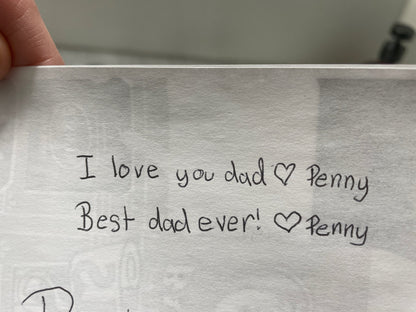 I love you dad ♡ Penny
Best dad ever! ♡ Penny